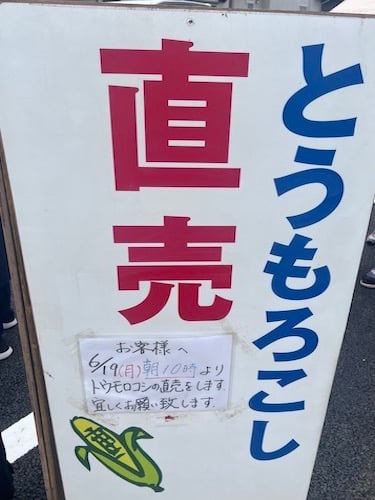 とうもろこし
直売
お客様へ
6/19(月)朝10時より
トウモロコシの直売をします.
宜しくお願い致します.